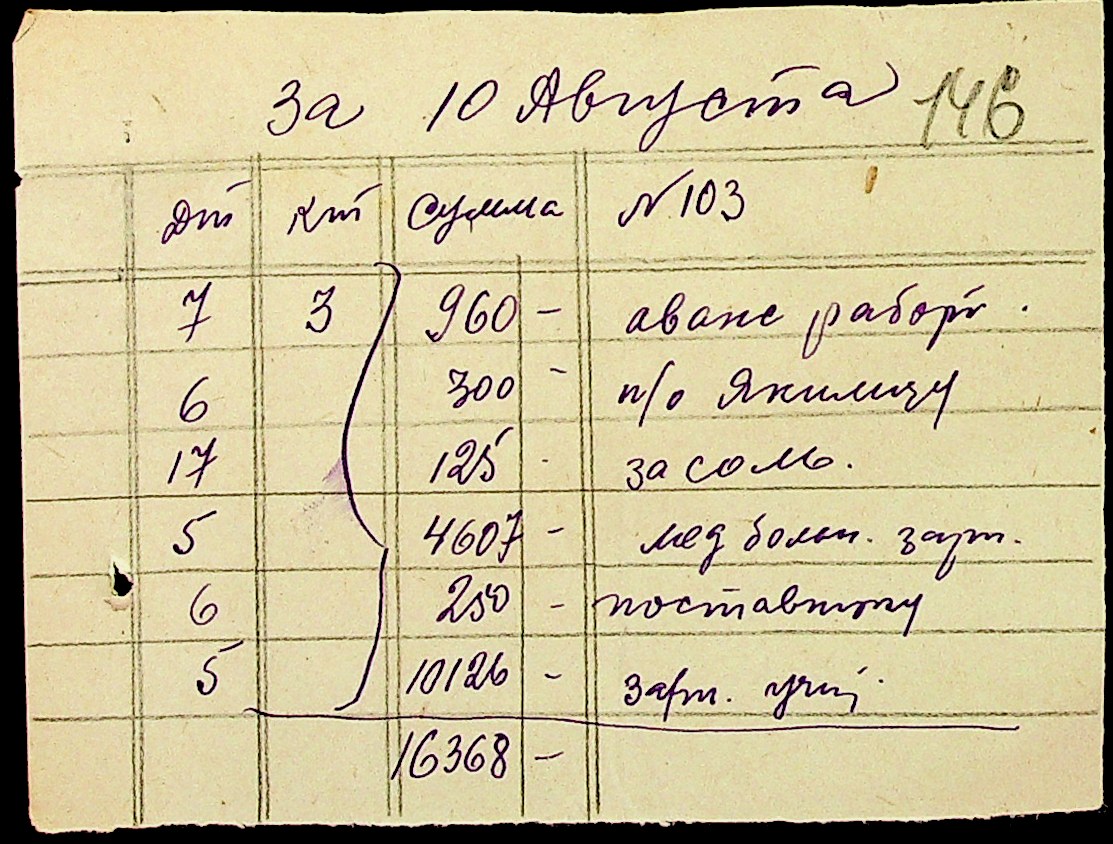 За 10 Августа 146
Дт Кт Сумма № 103
7 3 960 - аванс рабоч.
6 300 - п/о Якимцу
17 125 - за соль.
5 4607 - мед больн. зарп.
6 250 - поставщику
5 10126 - зарп. учит.
16368 -